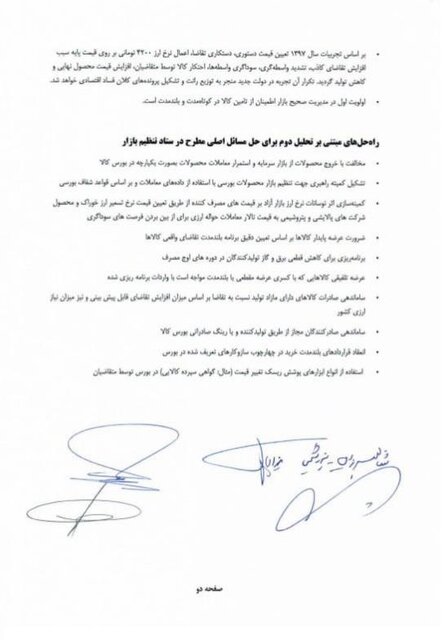 • بر اساس تجربیات سال ۱۳۹۷ تعیین قیمت دستوری، دستکاری تقاضا، اعمال نرخ ارز ۴۲۰۰ تومانی بر روی قیمت پایه سبب
افزایش تقاضای کاذب، تشدید واسطه‌گری، سوداگری واسطه‌ها، احتکار کالا توسط متقاضیان، افزایش قیمت محصول نهایی و
کاهش تولید گردید. تکرار آن تجربه در دولت جدید منجر به توزیع رانت و تشکیل پرونده‌های کلان فساد اقتصادی خواهد شد.
• اولویت اول در مدیریت صحیح بازار اطمینان از تامین کالا در کوتاه‌مدت و بلندمدت است.
راه‌حل‌های مبتنی بر تحلیل دوم برای حل مسائل اصلی مطرح در ستاد تنظیم بازار
• مخالفت با خروج محصولات از بازار سرمایه و استمرار معاملات محصولات بصورت یکپارچه در بورس کالا
• تشکیل کمیته راهبری جهت تنظیم بازار محصولات بورسی با استفاده از داده‌های معاملات و بر اساس قواعد شفاف بورسی
• کمینه‌سازی اثر نوسانات نرخ ارز بازار آزاد بر قیمت های مصرف کننده از طریق تعیین قیمت نرخ تسعیر ارز خوراک و محصول
شرکت های پالایشی و پتروشیمی به قیمت تالار معاملات حواله ارزی برای از بین بردن فرصت های سوداگری
• ضرورت عرضه پایدار کالاها بر اساس تعیین دقیق برنامه بلندمدت تقاضای واقعی کالاها
• برنامه‌ریزی برای کاهش قطعی برق و گاز تولیدکنندگان در دوره های اوج مصرف
• عرضه تلفیقی کالاهایی که با کسری عرضه مقطعی یا بلندمدت مواجه است با واردات برنامه ریزی شده
• ساماندهی صادرات کالاهای دارای مازاد تولید نسبت به تقاضا بر اساس میزان افزایش تقاضای قابل پیش بینی و نیز میزان نیاز
ارزی کشور
• ساماندهی صادرکنندگان مجاز از طریق تولیدکننده و یا رینگ صادراتی بورس کالا
• انعقاد قراردادهای بلندمدت خرید در چهارچوب سازوکارهای تعریف شده در بورس
• استفاده از انواع ابزارهای پوشش ریسک تغییر قیمت (مثال: گواهی سپرده کالایی) در بورس توسط متقاضیان
صفحه دو